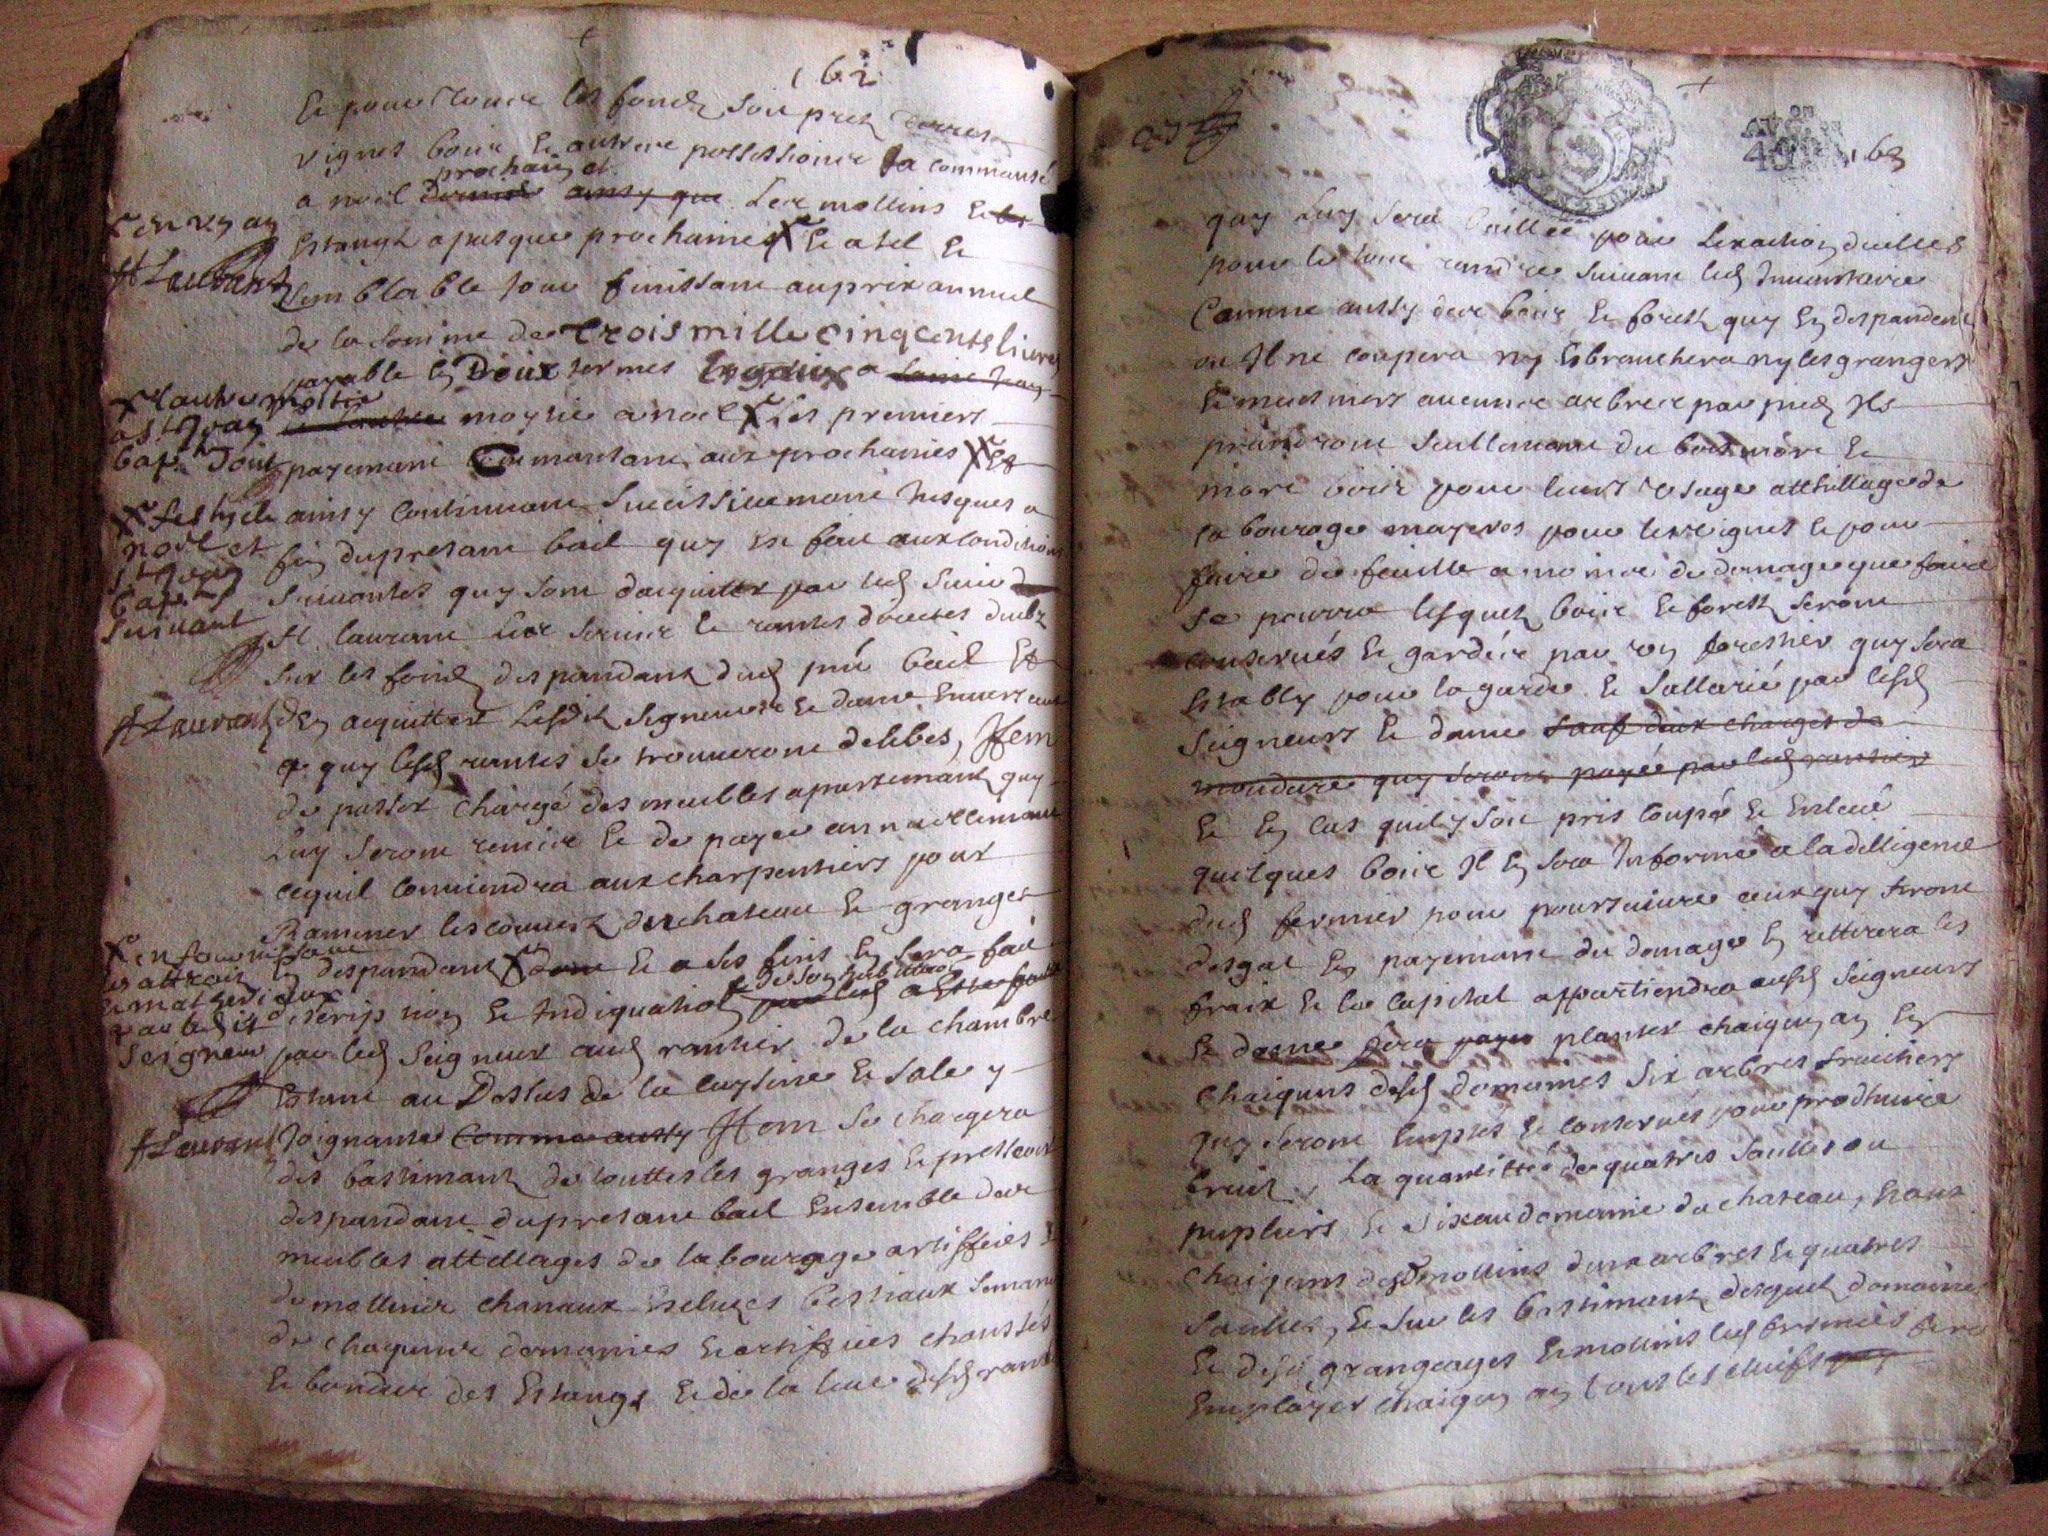 162
Et pour toutz les fondz soit prez terres
vignes bois et autres possessions a commansé
a noel dernier ainsy que Les mollins et les
prochain et
Estangz a pasques prochaines X Et a tel et
X en un an
semblable jour finissant au prix annuel
H Laurans
de la somme de trois mille cinq cents livres
payable en Deux termes esgaux a
X l'autre moitié
a st Jean
Bap.te dont
moytié a noel X Les premiers
payemant Commansant aux prochaines XX Et
XX festes de
noël et
st Jean
Bap.te
suivant
ainsy Continuant Successivemant Jusques a
fin du presant bail quy est fait aux conditions
suivantes quy sont d'acquitter par led sieur
H. laurans Les servis et rantes directes deubz
sur les fondz despandant dud pnt bail Et
H Laurans
d'en acquitter Lesdits seigneurs et dame Envers ceux
a quy lesd rantes se trouveront debües, Item
de rester chargé des meubles apartemant quy
Luy seront remis Et de payer annuellemant
ce quil conviendra aux charpentiers pour
Ramener les couvertz du chateau Et granges
X en fournissant
les attraitz
et matteriaux
par lesdits
Seigneurs
en despandant X Et a ses fins En sera fait
description Et Indiquation
par led Seigneur aud rantier de la chambre
Estant au Dessus de la cuysine Et sale y
H Laurans
Joignante Comme aussy Item se chargera
des bastimant de touttes les granges Et pressoirs
despandant du presant bail Ensemble des
meubles attellages de labourage artiffices
de mollins chanaux Escluzes bestiaux semans
de chaqunes domaines Et artiffices chaussés
Et bondes des Estangs Et de la lieve desd rantes
163
quy Luy sera baillée pour L'exaction d'icelles
pour le tout randre suivant led Inventaire
Comme aussy des bois Et forestz quy En despandent
ou Il ne coupera ny Esbranchera ny les grangers
Et meusniers aucunes arbres par pied Ils
prandront seullemant du bois mort Et
mort bois pour leurs usage atthillage de
labourage mayeres pour les vignes Et pour
faire de feuille a moins de domage que faire
se pourra lesquelz bois Et forestz seront
conservés Et gardés par un forestier quy sera
Estably pour la garde Et Sallarié par lesd
Seigneurs Et dame sauf deux charges de
moudure quy seront payée par led rantier
Et En cas quil y soit pris coupé Et Enlevé
quelques bois Il En sera Informé a la delligense
dud fermier pour poursuivre ceux quy feront
desgat En payemant du domage En rettirera les
fraix Et le capital appartiendra ausd Seigneurs
Et dame fera planter chaiqun an En
chaiquns desd domaines six arbres fruitiers
quy seront Emptés Et conservés pour prodhuire
fruit, La quantitté de quatres saulles ou
pupliers Et dix au domaine du chateau, Et aux
chaiquns desd mollins deux arbres Et quatres
saulles, Et sur les bastimant desquelz domaines
Et desd grangeages Et mollins led fermier fera
Employer chaiqun an tous les cluifs